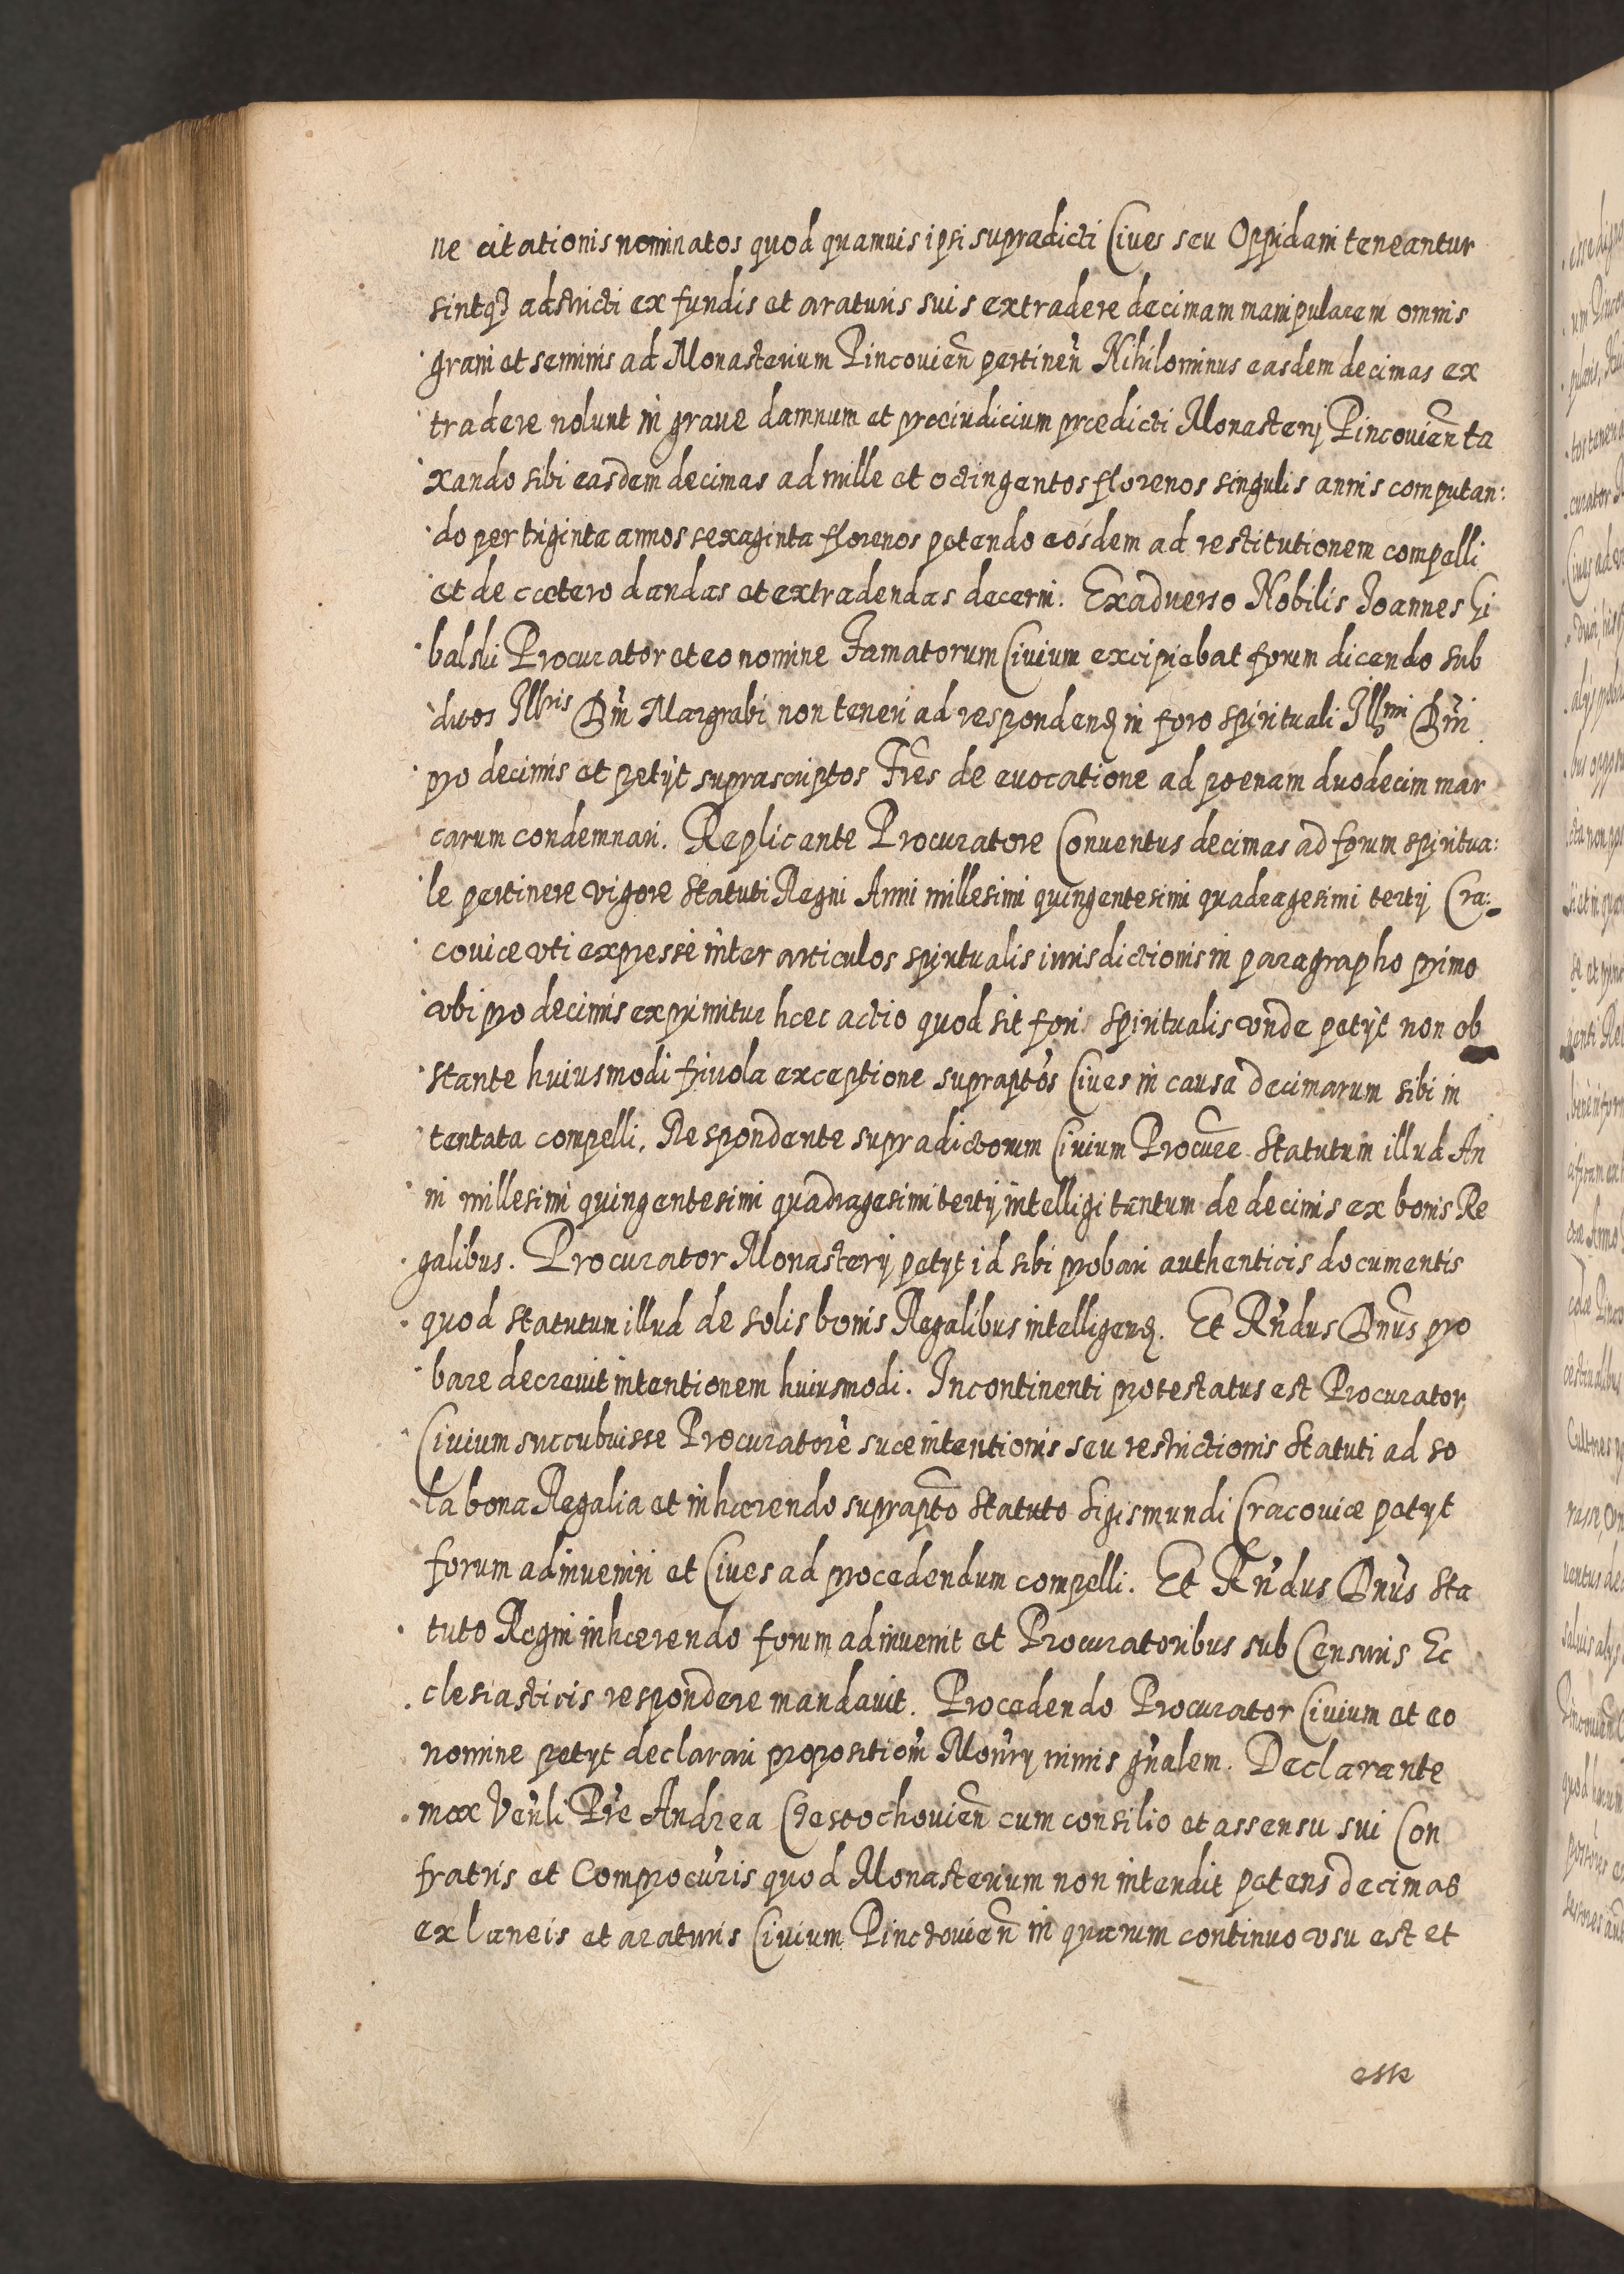 ne citationis nominatos quod quamuis ipsi supradicti Ciues seu Oppidani teneantur
sintq3 adstricti ex fundis et araturis suis extradere decimam manipularem omnis
grani et seminis ad Monasterium Pincouien̄ pertinen̄ Nihilominus easdem decimas ex
tradere nolunt in graue damnum et præiudicium prædicti Monasterij Pincouien̄ ta
xando sibi easdem decimas ad mille et octingentos florenos singulis annis computan:
do per triginta annos sexaginta florenos petendo eosdem ad restitutionem compelli
et de cætero dandas et extradendas decerni. Exaduerso Nobilis Joannes Gi
balski Procurator et eo nomine Famatorum Ciuium excipiebat forum dicendo sub
ditos Illris Dn̄i Margrabi non teneri ad respondend in foro spirituali Illmi Dn̄i
pro decimis et petijt suprascriptos Fr̄es de euocatione ad poenam duodecim mar
carum condemnari. Replicante Procuratore Conuentus decimas ad forum spiritua:
le pertinere vigore statuti Regni Anni millesimi quingentesimi quadragesimi tertij Cra:
couiæ vti expresse inter articulos spiritualis iurisdictionis in paragrapho primo
vbi pro decimis exprimitur hæc actio quod sit fori spiritualis vnde petijt non ob
stante huiusmodi friuola exceptione supraptōs Ciues in causa decimarum sibi in
tentata compelli. Respondente supradictorum Ciuium Procur̄e Statutum illud An
ni millesimi quingentesimi quadragesimi tertij intelligi tantum de decimis ex bonis Re
galibus. Procurator Monasterij petijt id sibi probari authenticis documentis
quod statutum illud de solis bonis Regalibus intelligend. Et Rn̄dus Dn̄us pro
bare decreuit intentionem huiusmodi. Incontinenti protestatus est Procurator
Ciuium succubuisse Procuratorē suæ intentionis seu restrictionis Statuti ad so
la bona Regalia et inhærendo supraptō Statuto Sigismundi Cracouiæ petijt
forum adinueniri et Ciues ad procedendum compelli. Et Rn̄dus Dn̄us Sta
tuto Regni inhærendo forum adinuenit et Procuratoribus sub Censuris Ec
clesiasticis respondere mandauit. Procedendo Procurator Ciuium et eo
nomine petijt declarari proposition̄ Mon̄rij nimis gn̄alem. Declarante
mox Ven̄li Pr̄e Andrea Czestochouien̄ cum consilio et assensu sui Con
fratris et Comprocūris quod Monasterium non intendit petens decimas
ex laneis et araturis Ciuium Pinczouien̄ in quarum continuo vsu est et
esse